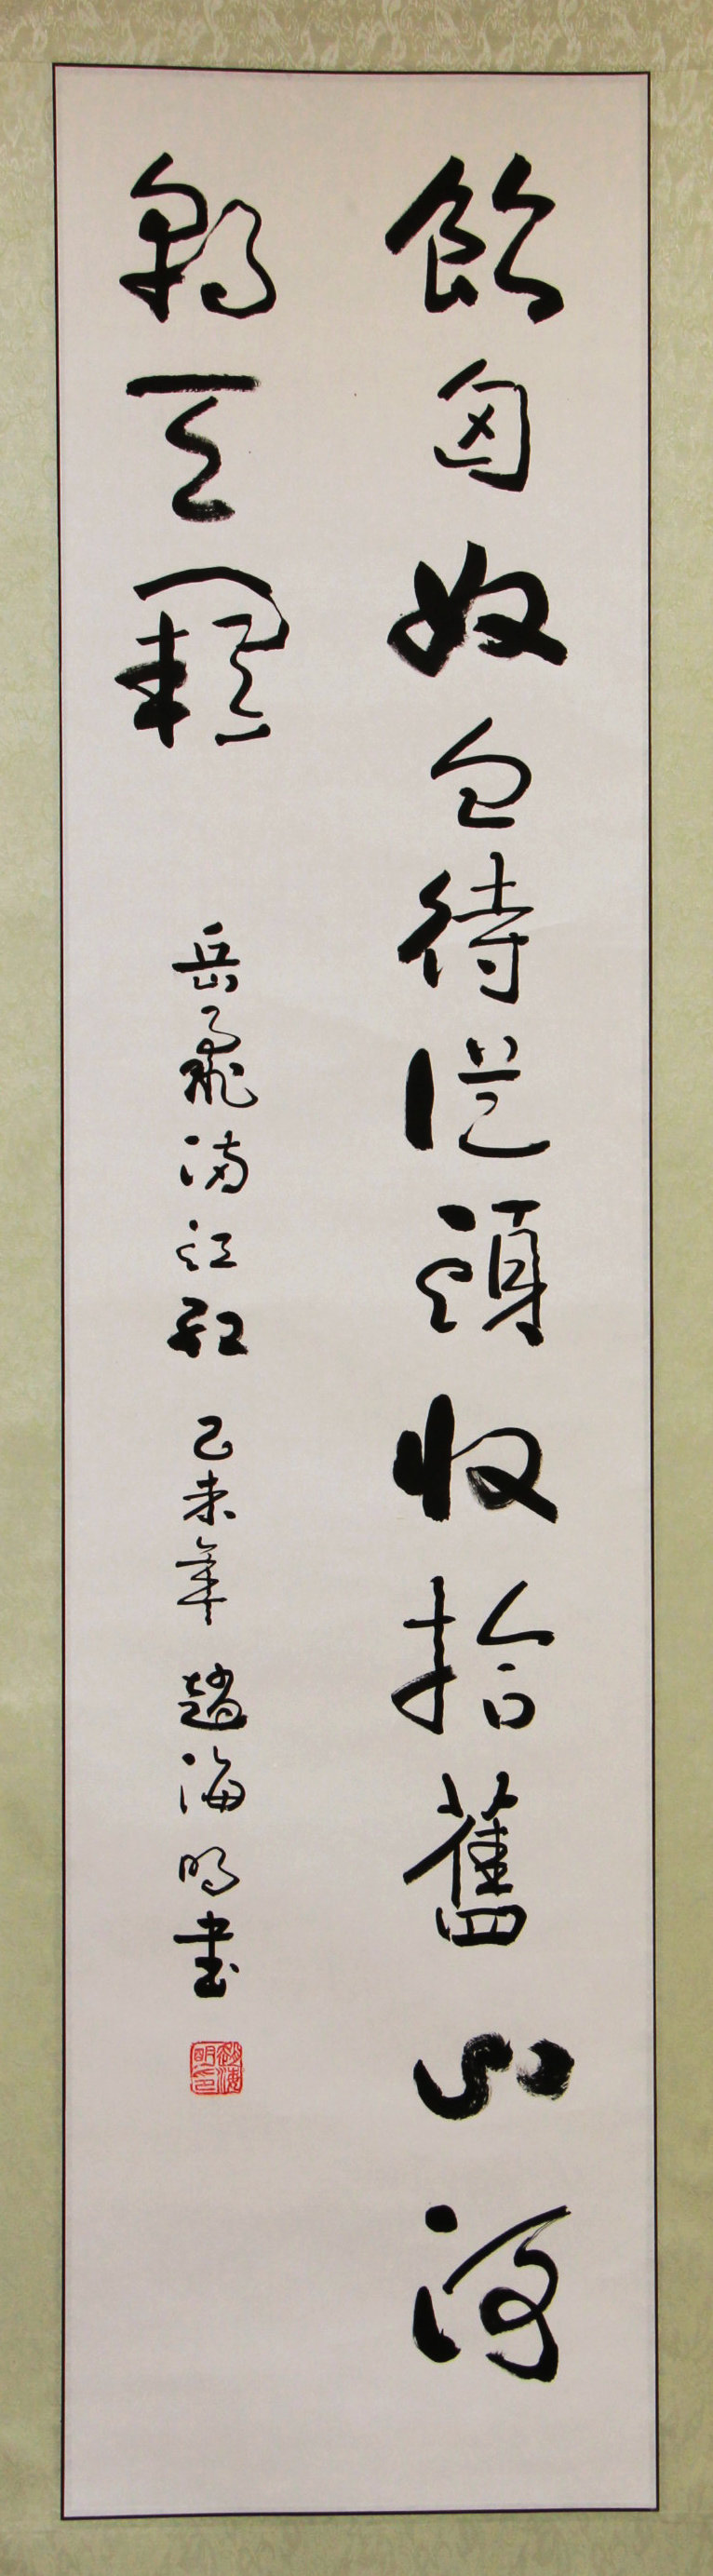 飲匈奴血待從頭收拾舊山河
朝天闕 岳飛滿江紅 己未年 趙海明書
趙海明印